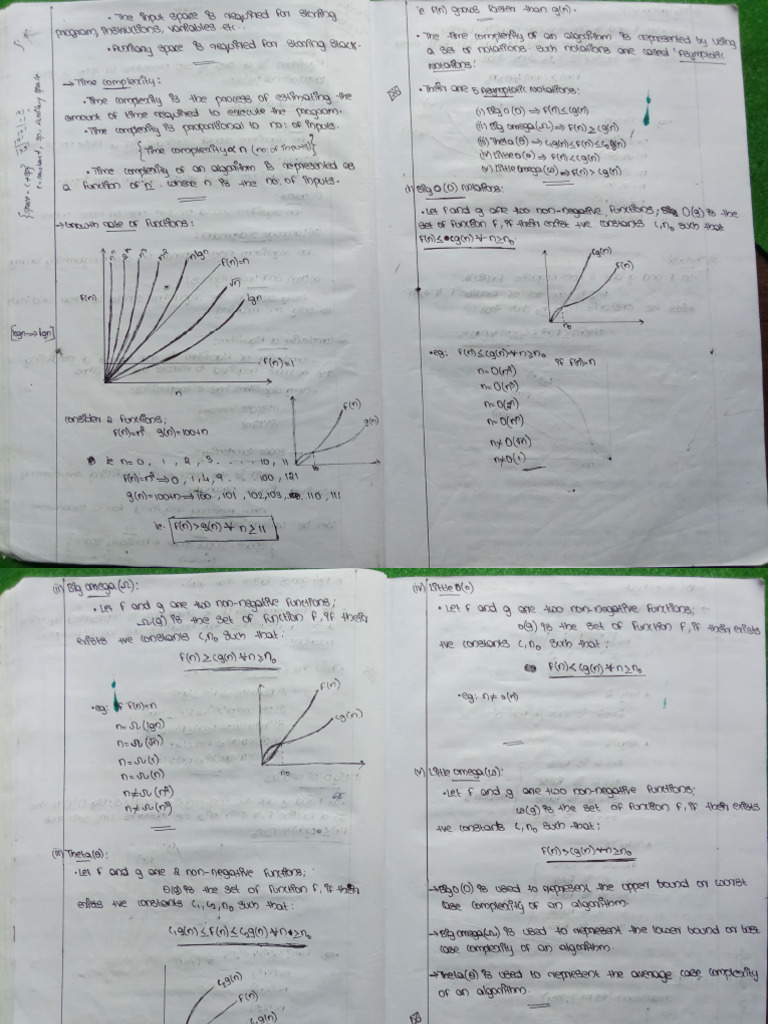 • The input space is required for storing
program, instructions, variables etc..
• Auxiliary space is required for storing stack.
→ Time complexity:
• Time complexity is the process of estimating the
amount of time required to execute the program.
• Time complexity is proportional to no: of inputs.
{Time complexity ∝ n (no: of inputs)}
• Time complexity of an algorithm is represented as
a function of 'n'. where n is the no: of inputs.
→ Growth rate of functions:
n log n
f(n)=n
√n
log n
f(n)
f(n)=1
n
consider 2 functions;
f(n)=n² g(n)=100+n
f(n)
g(n)
n₀
ie n=0, 1, 2, 3 . . . . . 10, 11
f(n)=n² ⇒ 0, 1, 4, 9 . . . . 100, 121
g(n)=100+n ⇒ 100, 101, 102, 103, 110, 111
ie. f(n)>g(n) ∀ n≥11
ie f(n) grows faster than g(n).
• The time complexity of an algorithm is represented by using
a set of notations. such notations are called 'Asymptotic
Notations'.
• There are 5 Asymptotic Notations:
(i) Big O (O) ⇒ f(n)≤cg(n)
(ii) Big omega (Ω) ⇒ f(n)≥cg(n)
(iii) Theta (θ) ⇒ c₁g(n)≤f(n)≤c₂g(n)
(iv) Little o (o) ⇒ f(n)<cg(n)
(v) Little omega (ω) ⇒ f(n)>cg(n)
(i) Big O (O) notations:
• Let f and g are two non-negative functions, O(g) is the
set of function f, if there exist +ve constants c, n₀ such that
f(n)≤cg(n) ∀ n≥n₀
cg(n)
f(n)
n₀
• eg: f(n)≤cg(n) ∀ n≥n₀
if f(n)=n
n≠O(√n)
n≠O(1)
(ii) Big omega (Ω):
• Let f and g are two non-negative functions;
Ω(g) is the set of function f, if there
exists +ve constants c, n₀ such that:
f(n)≥cg(n) ∀ n≥n₀
f(n)
cg(n)
n₀
• eg: if f(n)=n
n=Ω(lgn)
n=Ω(√n)
n=Ω(1)
n=Ω(n)
n≠Ω(n²)
n≠Ω(n³)
(iii) Theta (θ):
• Let f and g are 2 non-negative functions;
θ(g) is the set of function f, if there
exists +ve constants c₁, c₂, n₀ such that:
c₁g(n)≤f(n)≤c₂g(n) ∀ n≥n₀
c₂g(n)
f(n)
c₁g(n)
(iv) Little o(o)
• Let f and g are two non-negative functions;
o(g) is the set of function f, if there exists
+ve constants c, n₀ such that:
f(n)<cg(n) ∀ n≥n₀
• eg: n≠o(n)
(v) Little omega (ω):
• Let f and g are two non-negative functions;
ω(g) is the set of function f, if there exists
+ve constants c, n₀ such that:
f(n)>cg(n) ∀ n≥n₀
→ Big O (O) is used to represent the upper bound or worst
case complexity of an algorithm.
→ Big omega (Ω) is used to represent the lower bound or best
case complexity of an algorithm.
→ Theta (θ) is used to represent the average case complexity
of an algorithm.